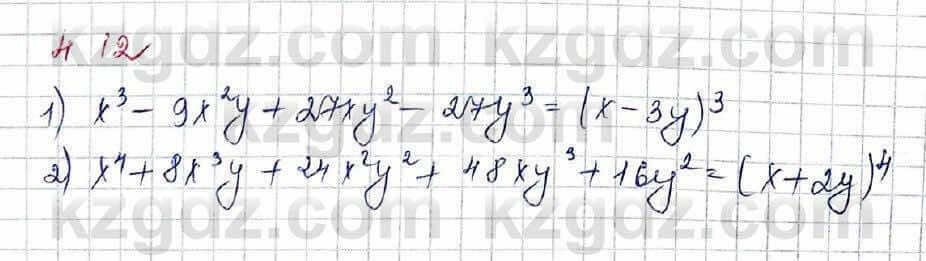 4.12
1) x³ - 9x²y + 27xy² - 27y³ = (x - 3y)³
2) x⁴ + 8x³y + 24x²y² + 48xy³ + 16y² = (x + 2y)⁴
kzgdz.com kzgdz.com
kzgdz.com kzgdz.com
kzgdz.com kzgdz.com